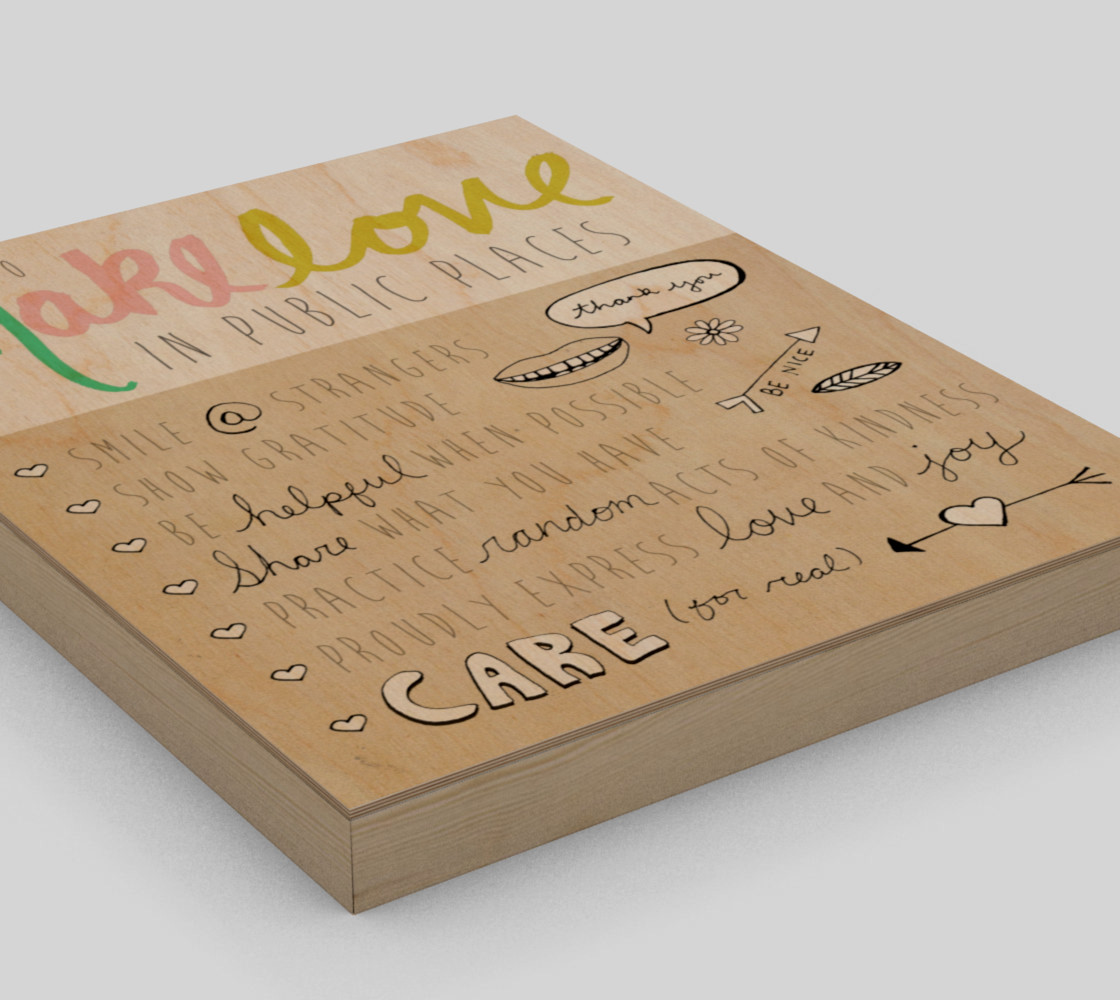 O
Make love
IN PUBLIC PLACES
thank you
SMILE @ STRANGERS
SHOW GRATITUDE
BE NICE
BE helpful WHEN POSSIBLE
Share WHAT YOU HAVE
PRACTICE random ACTS OF KINDNESS
PROUDLY EXPRESS love AND joy
CARE (for real)